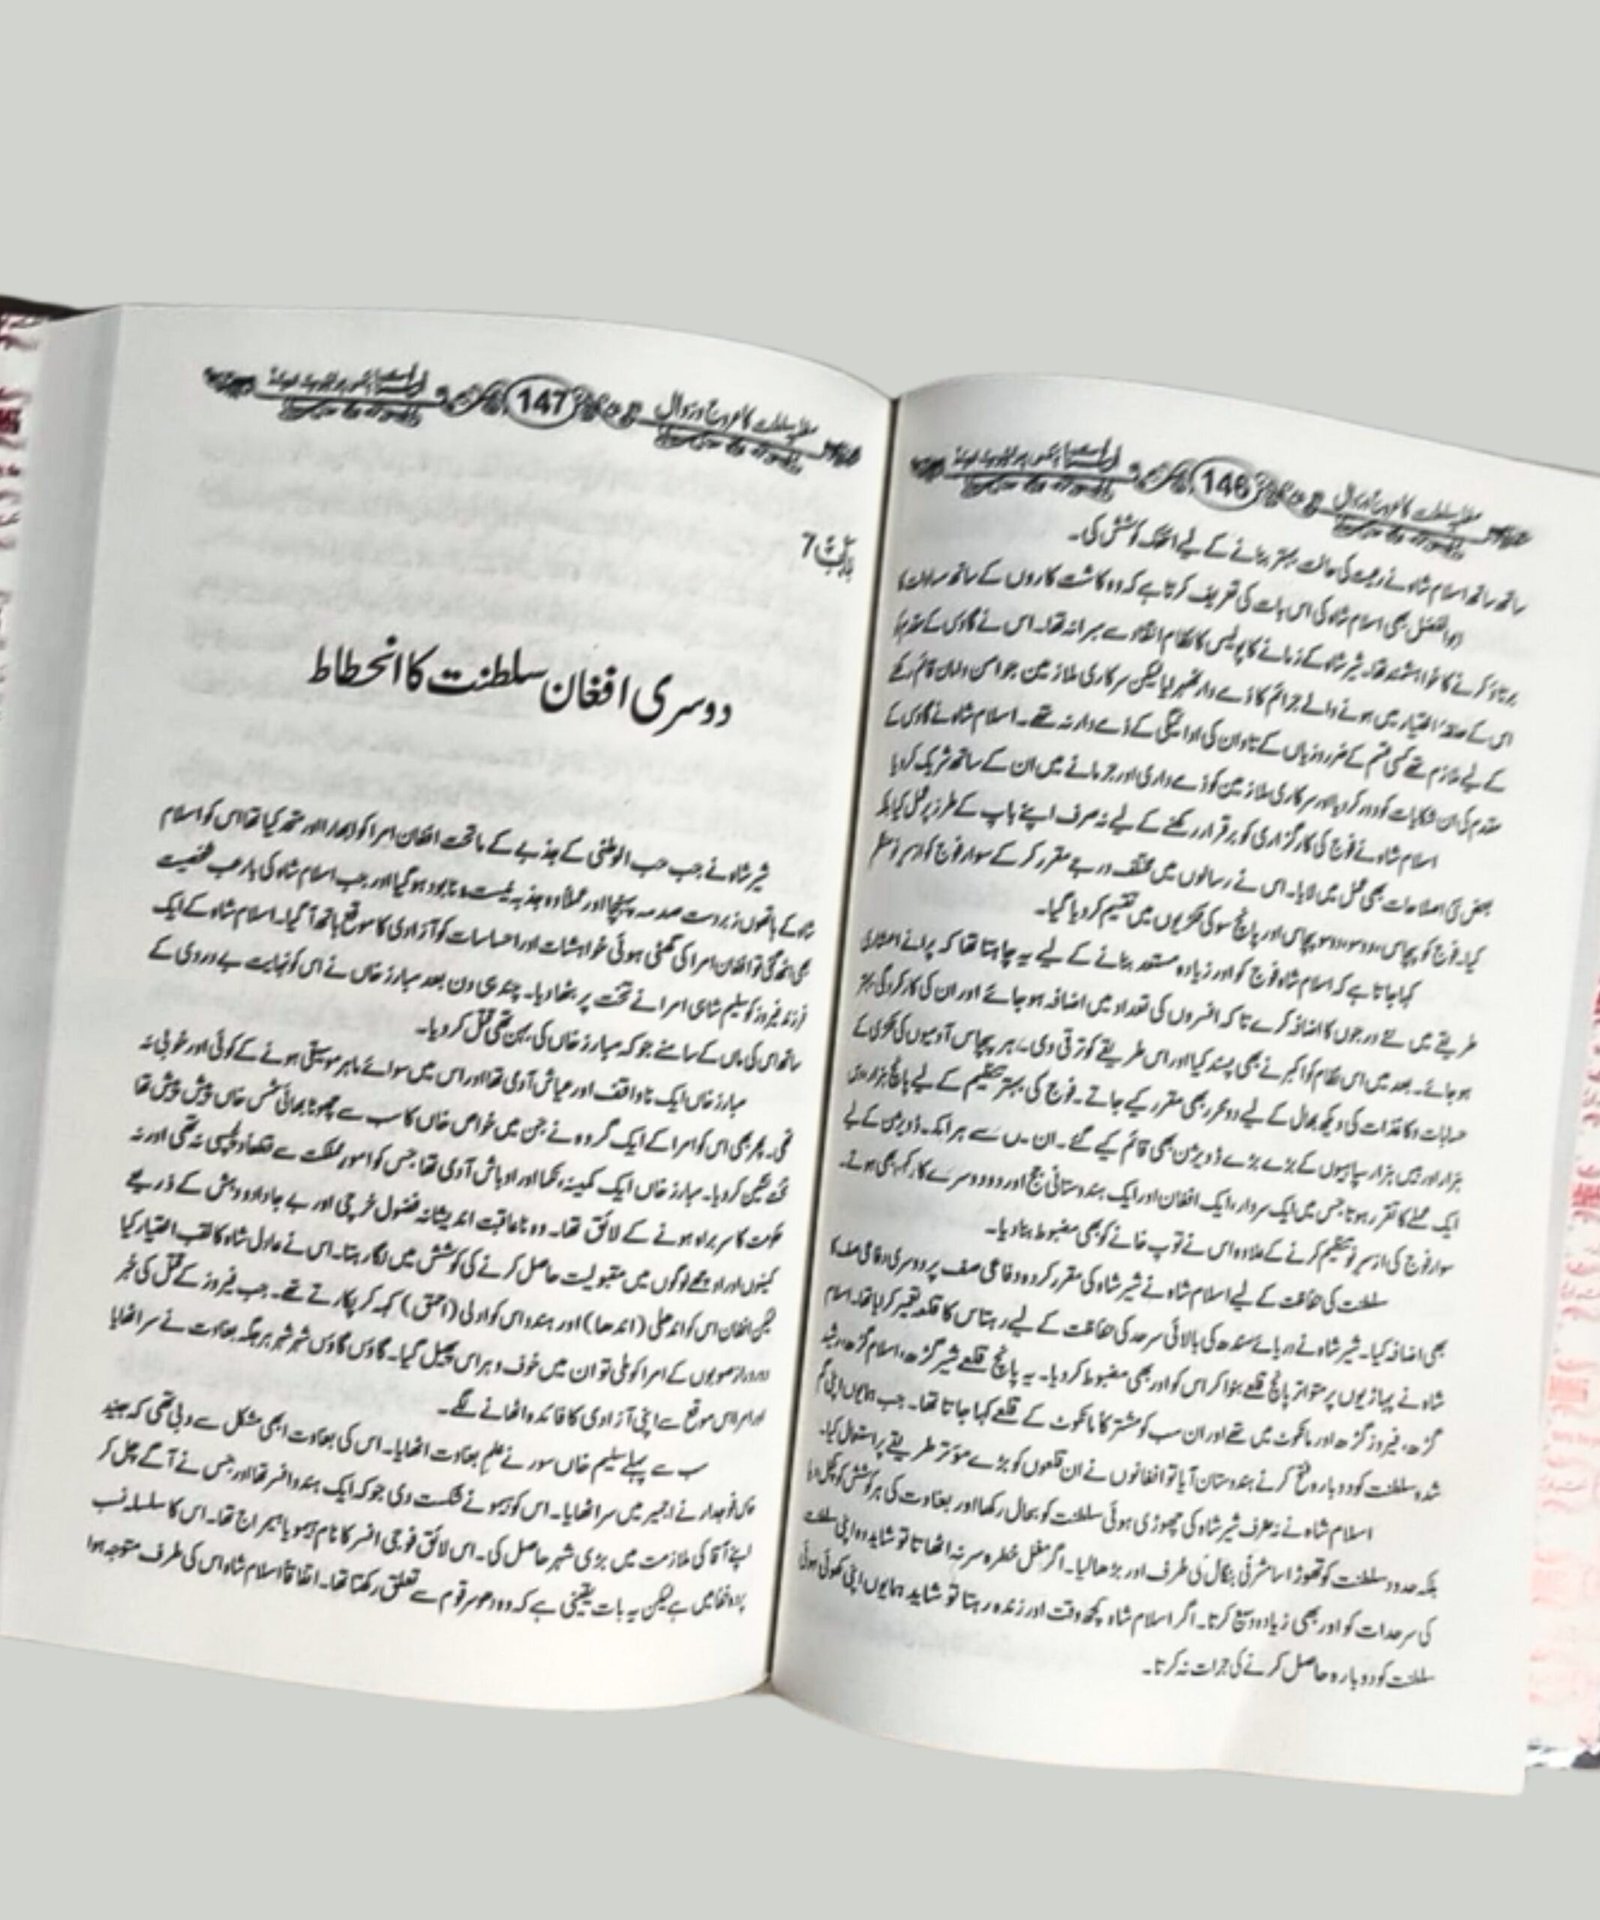 مغلیہ سلطنت کا عروج اور زوال
146
ساتھ ساتھ اسلام شاہ نے رعیت کی حالت بہتر بنانے کے لیے انتھک کوشش کی۔
ابوالفضل بھی اسلام شاہ کی اس بات کی تعریف کرتا ہے کہ وہ کاشت کاروں کے ساتھ
برتاؤ کرنے کا خواہشمند تھا۔ شیر شاہ کے زمانے کا پولیس کا نظام سے مبرا نہ تھا۔ اس نے گاؤں کے مقدم کو
اس کے حلقۂ اختیار میں ہونے والے جرائم کا ذمے دار ٹھہرایا لیکن سرکاری ملازمین جو امن و امان قائم رکھنے
کے لیے ملازم تھے کسی قسم کے ضرر و زیاں کے تاوان کی ادائیگی کے ذمے دار نہ تھے۔ اسلام شاہ نے گاؤں کے
مقدم کی ان شکایات کو دور کر دیا اور سرکاری ملازمین کو ذمے داری اور جرمانے میں ان کے ساتھ شریک کر دیا
اسلام شاہ نے فوج کی کارگزاری کو برقرار رکھنے کے لیے نہ صرف اپنے باپ کے طرز پر عمل کیا بلکہ
بعض نئی اصلاحات بھی عمل میں لایا۔ اس نے رسالوں میں مختلف درجے مقرر کر کے سوار فوج کو از سر نو منظم
کیا۔ فوج کو پچاس، دو سو، دو سو پچاس اور پانچ سو کی ٹکڑیوں میں تقسیم کر دیا گیا۔
کہا جاتا ہے کہ اسلام شاہ فوج کو اور زیادہ مستعد بنانے کے لیے یہ چاہتا تھا کہ پرانے اعشاری
طریقے میں نئے درجوں کا اضافہ کرے تاکہ افسروں کی تعداد میں اضافہ ہو جائے اور ان کی کارکردگی بہتر
ہو جائے۔ بعد میں اس نظام کو اکبر نے بھی پسند کیا اور اس طریقے کو ترقی دی۔ ہر پچاس آدمیوں کی ٹکڑی کے
حسابات و کاغذات کی دیکھ بھال کے لیے دو محرر بھی مقرر کیے جاتے۔ فوج کی بہتر تنظیم کے لیے پانچ ہزار، دس
ہزار اور بیس ہزار سپاہیوں کے بڑے بڑے ڈویژن بھی قائم کیے گئے۔ ان میں سے ہر ایک ڈویژن کے لیے
ایک عملے کا تقرر ہوتا جس میں ایک سردار، ایک افغان اور ایک ہندوستانی جج اور دو دوسرے کارکن بھی ہوتے۔
سوار فوج کی از سر نو تنظیم کرنے کے علاوہ اس نے توپ خانے کو بھی مضبوط بنا دیا۔
سلطنت کی حفاظت کے لیے اسلام شاہ نے شیر شاہ کی مقرر کردہ دفاعی صف پر دوسری دفاعی صف کا
بھی اضافہ کیا۔ شیر شاہ نے دریائے سندھ کی بالائی سرحد کی حفاظت کے لیے رہتاس کا قلعہ تعمیر کر لیا تھا۔ اسلام
شاہ نے پہاڑیوں پر متواتر پانچ قلعے بنوا کر اس کو اور بھی مضبوط کر دیا۔ یہ پانچ قلعے شیر گڑھ، اسلام گڑھ، رشید
گڑھ، فیروز گڑھ اور مانکوٹ میں تھے اور ان سب کو مشترکاً مانکوٹ کے قلعے کہا جاتا تھا۔ جب ہمایوں اپنی گم
شدہ سلطنت کو دوبارہ فتح کرنے ہندوستان آیا تو افغانوں نے ان قلعوں کو بڑے مؤثر طریقے پر استعمال کیا۔
اسلام شاہ نے نہ صرف شیر شاہ کی چھوڑی ہوئی سلطنت کو بحال رکھا اور بغاوت کی ہر کوشش کو کچل دیا
بلکہ حدود سلطنت کو تھوڑا سا مشرقی بنگال کی طرف اور بڑھا لیا۔ اگر مغل خطرہ سر نہ اٹھاتا تو شاید وہ اپنی سلطنت
کی سرحدات کو اور بھی زیادہ وسیع کرتا۔ اگر اسلام شاہ کچھ وقت اور زندہ رہتا تو شاید ہمایوں اپنی کھوئی ہوئی
سلطنت کو دوبارہ حاصل کرنے کی جرات نہ کرتا۔
مغلیہ سلطنت کا عروج اور زوال
147
باب 7
دوسری افغان سلطنت کا انحطاط
شیر شاہ نے جب حب الوطنی کے جذبے کے ماتحت افغان امرا کو ابھارا اور متحد کیا تھا اس کو اسلام
شاہ کے ہاتھوں زبردست صدمہ پہنچا اور عملاً وہ جذبہ نیست و نابود ہو گیا اور جب اسلام شاہ کی بارعب شخصیت
بھی اٹھ گئی تو افغان امرا کی گھٹی ہوئی خواہشات اور احساسات کو آزادی کا موقع ہاتھ آ گیا۔ اسلام شاہ کے ایک
فرزند فیروز کو سلیم شاہی امرا نے تخت پر بٹھا دیا۔ چند ہی دن بعد مبارز خاں نے اس کو نہایت بے دردی کے
ساتھ اس کی ماں کے سامنے جو کہ مبارز خاں کی بہن تھی قتل کر دیا۔
مبارز خاں ایک ناواقف اور عیاش آدمی تھا اور اس میں سوائے ماہر موسیقی ہونے کے کوئی اور خوبی نہ
تھی۔ پھر بھی اس کو امرا کے ایک گروہ نے جن میں خواص خاں کا سب سے چھوٹا بھائی شمس خاں پیش پیش تھا
تخت نشین کر دیا۔ مبارز خاں ایک کمینہ، نکما اور اوباش آدمی تھا جس کو امور مملکت سے قطعاً دلچسپی نہ تھی اور نہ
حکومت کا سربراہ ہونے کے لائق تھا۔ وہ ناعاقبت اندیشانہ فضول خرچی اور بے جا داد و دہش کے ذریعے
کمینوں اور اوچھے لوگوں میں مقبولیت حاصل کرنے کی کوشش میں لگا رہتا۔ اس نے عادل شاہ کا لقب اختیار کیا
لیکن افغان اس کو اندھلی (اندھا) اور ہندو اس کو ادلی (احمق) کہہ کر پکارتے تھے۔ جب فیروز کے قتل کی خبر
دور دراز صوبوں کے امرا کو ملی تو ان میں خوف و ہراس پھیل گیا۔ گاؤں گاؤں شہر شہر ہر جگہ بغاوت نے سر اٹھایا
اور امرا اس موقع سے اپنی آزادی کا فائدہ اٹھانے لگے۔
سب سے پہلے سلیم خاں سور نے علم بغاوت اٹھایا۔ اس کی بغاوت ابھی مشکل سے دبی تھی کہ جنید
خاں فوجدار نے اجمیر میں سر اٹھایا۔ اس کو ہیمو نے شکست دی جو کہ ایک ہندو افسر تھا اور جس نے آگے چل کر
اپنے آقا کی ملازمت میں بڑی شہر حاصل کی۔ اس لائق فوجی افسر کا نام ہیمو یا ہیمراج تھا۔ اس کا سلسلہ نسب
پردہ خفا میں ہے لیکن یہ بات یقینی ہے کہ وہ دھوسر قوم سے تعلق رکھتا تھا۔ اتفاقاً اسلام شاہ اس کی طرف متوجہ ہوا